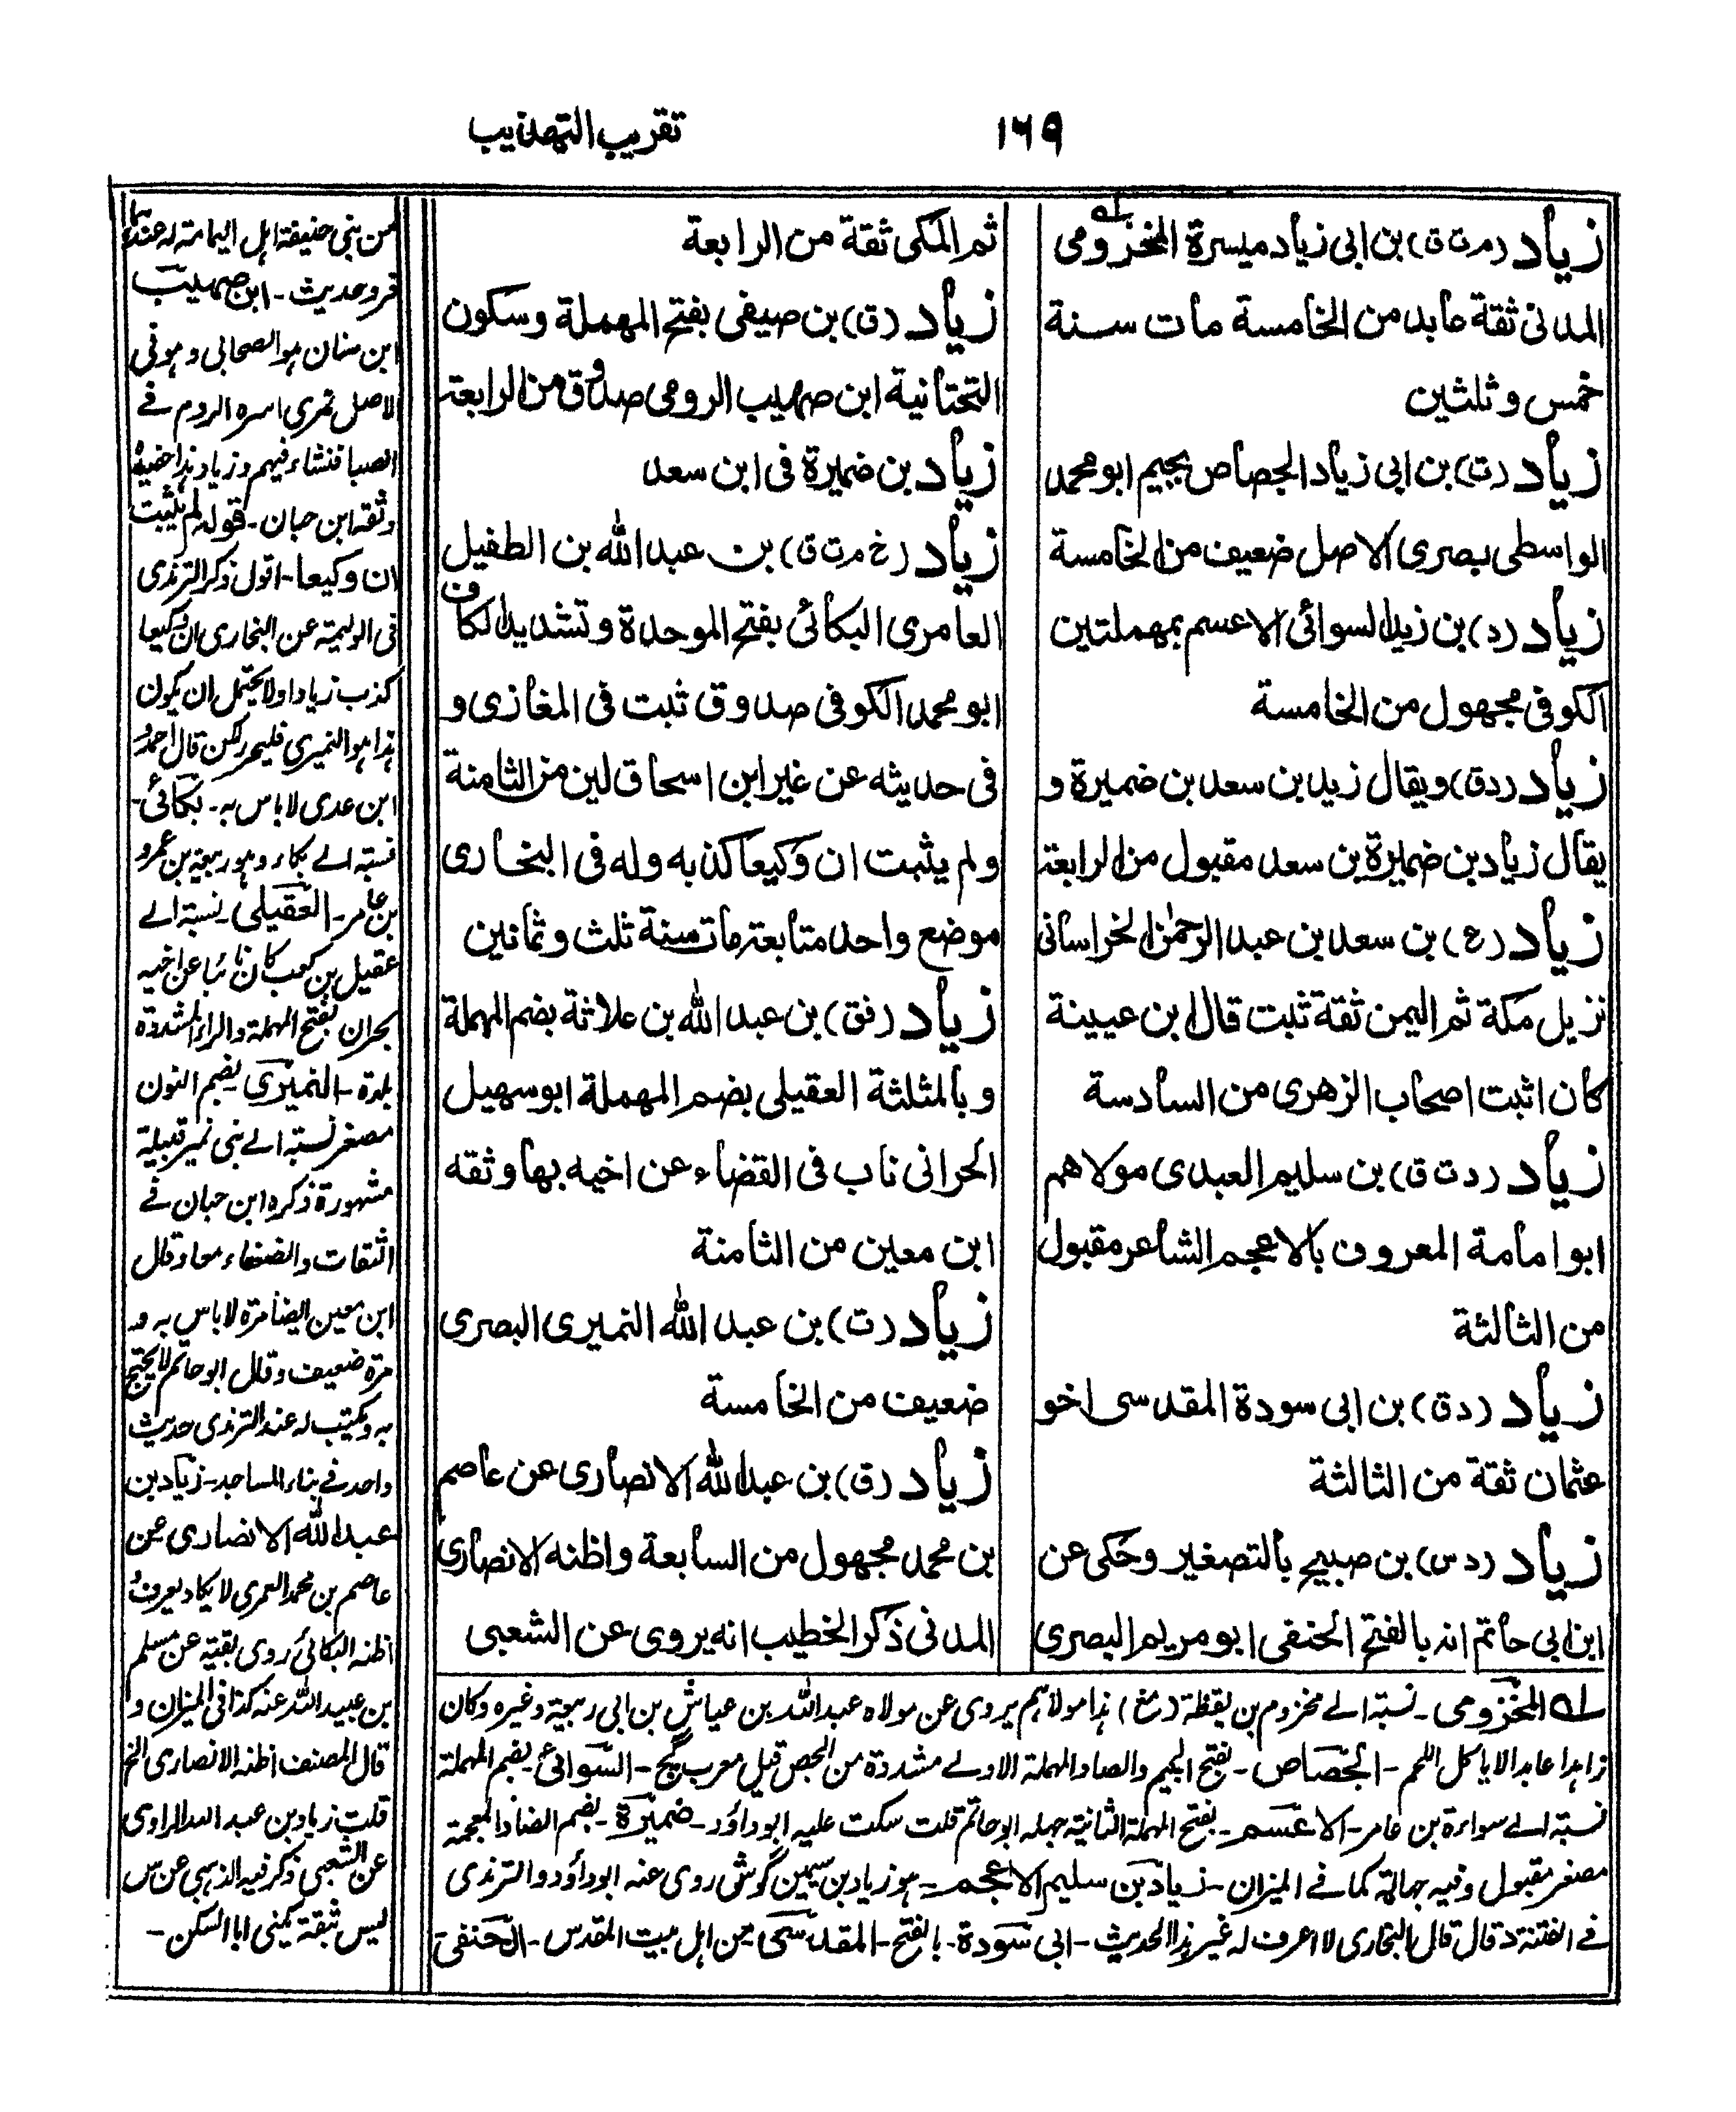 تقريب التهذيب
١٦٩
زياد (م ت ق) بن ابى زياد ميسرة المخزومى
المدنى ثقة عابد من الخامسة مات سنة
خمس وثلثين
زياد (ت) بن ابى زياد الجصاص بجيم ابو محمد
الواسطى بصرى الاصل ضعيف من الخامسة
زياد (د) بن زيد السوائى الاعسم بمهملتين
الكوفى مجهول من الخامسة
زياد (د ق) ويقال زيد بن سعد بن ضميرة و
يقال زياد بن ضميرة بن سعد مقبول من الرابعة
زياد (ع) بن سعد بن عبد الرحمٰن الخراسانى
نزيل مكة ثم اليمن ثقة ثبت قال ابن عيينة
كان اثبت اصحاب الزهرى من السادسة
زياد (د ت ق) بن سليم العبدى مولاهم
ابو امامة المعروف بالاعجم الشاعر مقبول
من الثالثة
زياد (د ق) بن ابى سودة المقدسى اخو
عثمان ثقة من الثالثة
زياد (د س) بن صبيح بالتصغير وحكى عن
ابن ابى حاتم انه بالفتح الحنفى ابو مريم البصرى
ثم المكى ثقة من الرابعة
زياد (ق) بن صيفى بفتح المهملة وسكون
التحتانية ابن صهيب الرومى صدوق من الرابعة
زياد بن ضميرة فى ابن سعد
زياد (خ م ت ق) بن عبد الله بن الطفيل
العامرى البكائى بفتح الموحدة وتشديد الكاف
ابو محمد الكوفى صدوق ثبت فى المغازى و
فى حديثه عن غير ابن اسحاق لين من الثامنة
ولم يثبت ان وكيعا كذبه وله فى البخارى
موضع واحد متابعة مات سنة ثلث وثمانين
زياد (فق) بن عبد الله بن علاثة بضم المهملة
وبالمثلثة العقيلى بضم المهملة ابو سهيل
الحرانى ناب فى القضاء عن اخيه بها وثقه
ابن معين من الثامنة
زياد (ت) بن عبد الله النميرى البصرى
ضعيف من الخامسة
زياد (ق) بن عبد الله الانصارى عن عاصم
بن محمد مجهول من السابعة واظنه الانصارى
المدنى ذكر الخطيب انه يروى عن الشعبى
له المخزومى ـ نسبة الے مخزوم بن يقظة (مغ) هذا مولاهم يروى عن مولاه عبد الله بن عياش بن ابى ربيعة وغيره وكان
زاهدا عابدا لا ياكل اللحم ـ الجصاص ـ بفتح الجيم والصاد المهملة الاولے مشددة من الجص قيل معرب گچ ـ السوائى بضم المهملة
نسبة الے سواءة بن عامر ـ الاعسم ـ بفتح المهملة الثانية جهله ابو حاتم قلت سكت عليه ابو داؤد ـ ضميرة ـ بضم الضاد المعجمة
مصغر مقبول وفيه جهالة كما فے الميزان ـ زياد بن سليم الاعجم ـ هو زياد بن سيمين گوش روى عنه ابو داؤد والترمذى
فے الفتنة وقال قال البخارى لا اعرف له غير هذا الحديث ـ ابى سودة ـ بالفتح ـ المقدسى من اهل بيت المقدس ـ الحنفى
من بنى حنيفة اهل اليمامة له عندهما
فرد حديث ـ ابن صهيب
ابن سنان هو الصحابى وهو فى
الاصل نمرى اسره الروم فے
الصبا فنشاء فيهم وزياد هذا حفيده
وثقه ابن حبان ـ قوله لم يثبت
ان وكيعا ـ اقول ذكر الترمذى
فى الوليمة عن البخارى ان وكيعا
كذب زيادا ولا يحتمل ان يكون
هذا هو النميرى فليحرر لكن قال احمد و
ابن عدى لا باس به ـ بكائى ـ
نسبة الے بكاء وهو ربيعة بن عمرو
بن عامر ـ العقيلى ـ نسبة الے
عقيل بن كعب كان نائبا عن اخيه
بحران بفتح المهملة والراء المشددة
بلدة ـ النميرى بضم النون
مصغر نسبة الے بنى نمير قبيلة
مشهورة ذكره ابن حبان فے
الثقات والضعفاء معا وقال
ابن معين ايضا مرة لا باس به و
مرة ضعيف وقال ابو حاتم لا يحتج
به ويكتب له عند الترمذى حديث
واحد فے بناء المساجد ـ زياد بن
عبد الله الانصارى عن
عاصم بن محمد العمرى لا يكاد يعرف
اظنه البكائى روى بقية عن مسلم
بن عبيد الله عنه كذا فى الميزان و
قال المصنف اظنه الانصارى الخ
قلت زياد بن عبد الله الراوى
عن الشعبى ذكر فيه الذهبى عن س
ليس بثقة يكنى ابا السكن ـ